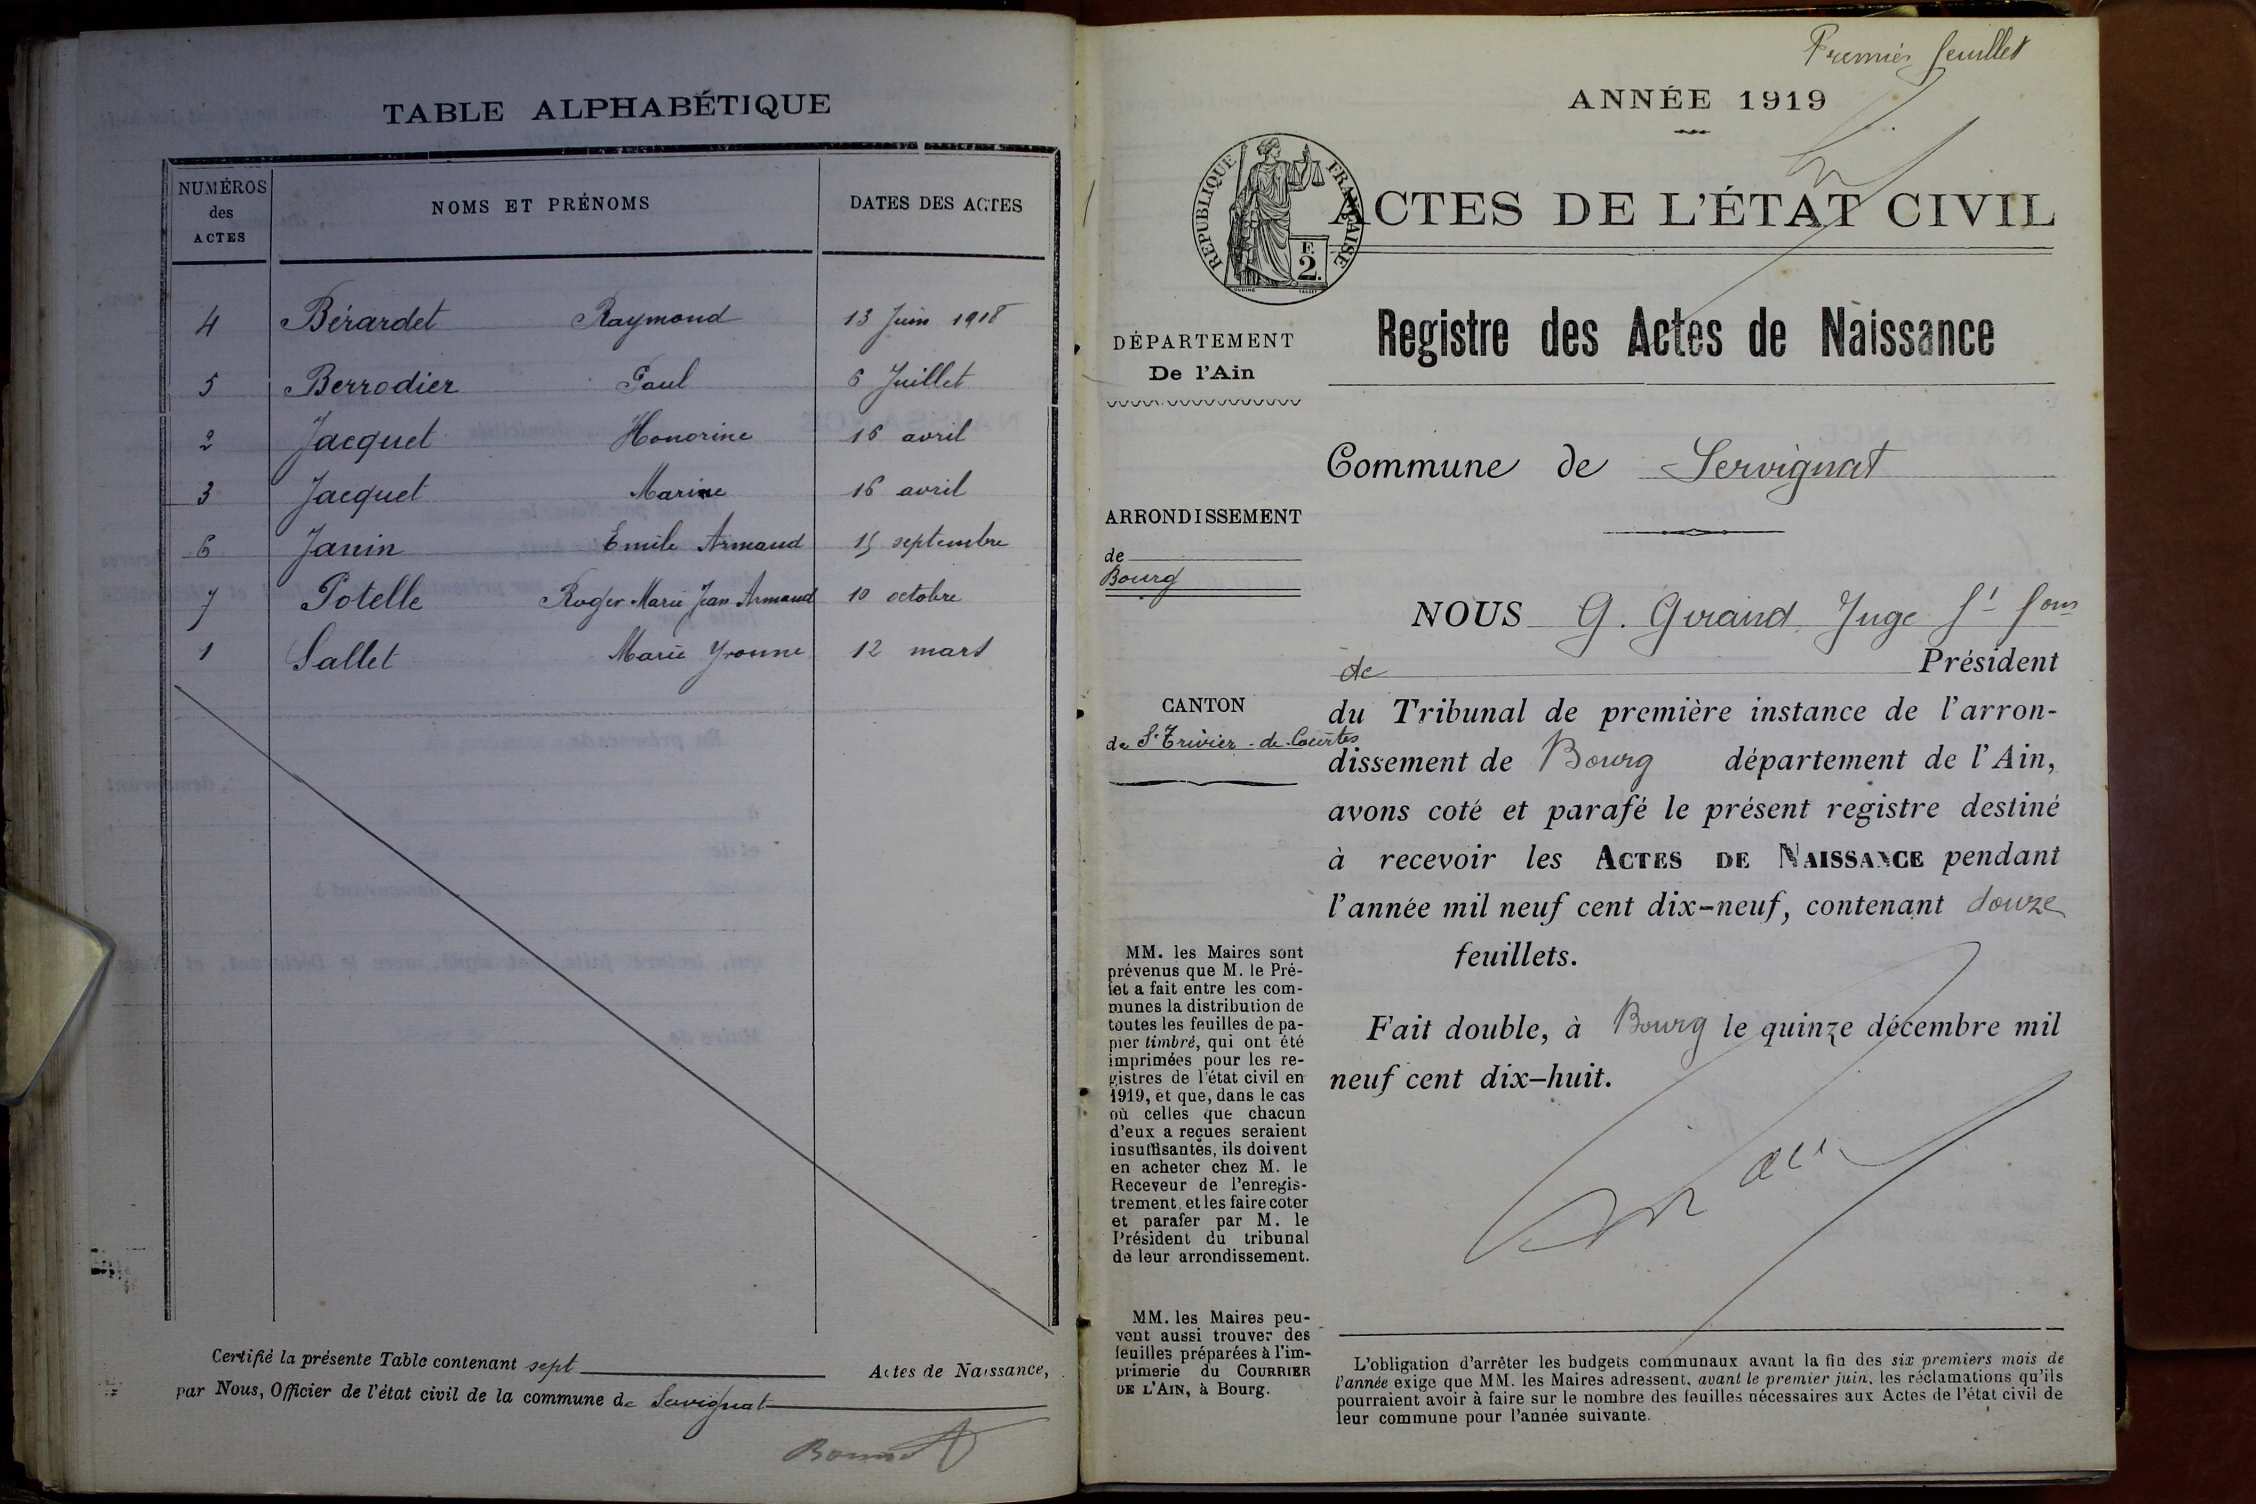 TABLE ALPHABÉTIQUE
NUMÉROS des ACTES NOMS ET PRÉNOMS DATES DES ACTES
4 Bérardet Raymond 13 Juin 1918
5 Berrodier Paul 6 Juillet
2 Jacquet Honorine 16 avril
3 Jacquet Marine 16 avril
6 Janin Emile Armand 15 septembre
7 Potelle Roger Marie Jean Armand 10 octobre
1 Sallet Marie Yvonne 12 mars
Certifié la présente Table contenant sept Actes de Naissance,
par Nous, Officier de l'état civil de la commune de Servignat
Premier feuillet
ANNÉE 1919
RÉPUBLIQUE FRANÇAISE
F.
2.
ACTES DE L'ÉTAT CIVIL
Registre des Actes de Naissance
DÉPARTEMENT
De l'Ain
Commune de Servignat
ARRONDISSEMENT
de
Bourg
CANTON
de St Trivier-de-Courtes
NOUS G. Girand Juge
de Président
du Tribunal de première instance de l'arron-
dissement de Bourg département de l'Ain,
avons coté et parafé le présent registre destiné
à recevoir les ACTES DE NAISSANCE pendant
l'année mil neuf cent dix-neuf, contenant douze
feuillets.
Fait double, à Bourg le quinze décembre mil
neuf cent dix-huit.
MM. les Maires sont
prévenus que M. le Pré-
fet a fait entre les com-
munes la distribution de
toutes les feuilles de pa-
pier timbré, qui ont été
imprimées pour les re-
gistres de l'état civil en
1919, et que, dans le cas
où celles que chacun
d'eux a reçues seraient
insuffisantes, ils doivent
en acheter chez M. le
Receveur de l'enregis-
trement, et les faire coter
et parafer par M. le
Président du tribunal
de leur arrondissement.
MM. les Maires peu-
vent aussi trouver des
feuilles préparées à l'im-
primerie du COURRIER
DE L'AIN, à Bourg.
L'obligation d'arrêter les budgets communaux avant la fin des six premiers mois de
l'année exige que MM. les Maires adressent, avant le premier juin, les réclamations qu'ils
pourraient avoir à faire sur le nombre des feuilles nécessaires aux Actes de l'état civil de
leur commune pour l'année suivante.